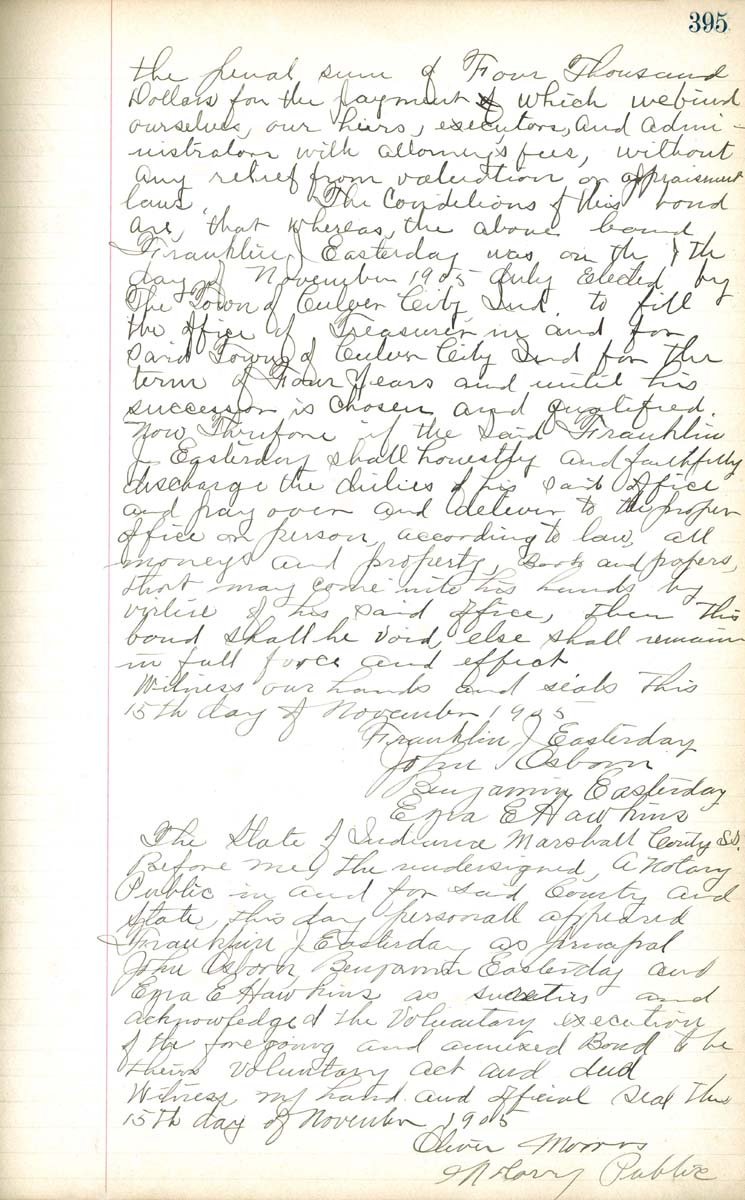 395
the penal sum of Four Thousand
Dollars for the payment of which we bind
ourselves, our heirs, executors, and admi-
nistrators with attorneys fees, without
any relief from valuation or appraisment
laws The Conditions of this bond
are, that whereas, the above bound
Franklin J Easterday was on the 7th
day of November 1905 duly Elected by
The Town of Culver City Ind. to fill
the office of Treasurer in and for
said Town of Culver City Ind for the
term of Four Years and until his
successor is chosen and qualified.
Now Therefore if the said Franklin
J Easterday shall honestly and faithfully
discharge the duties of his said office
and pay over and deliver to the proper
office or person according to law, all
moneys and property, Books and papers,
that may come into his hands by
virtue of his said office, then this
bond shall be void, else shall remain
in full force and effect
Witness our hands and seals this
15th day of November 1905
Franklin J Easterday
John Osborn
Benjamin Easterday
Ezra E Hawkins
The State of Indiana Marshall County S.S.
Before me, the undersigned, A Notary
Public in and for said County and
State, this day personall appeared
Franklin J Easterday as principal
John Osborn, Benjamin Easterday and
Ezra E Hawkins as sureties and
acknowledged the voluntary execution
of the foregoing and annexed Bond to be
theirs voluntary act and deed
Witness my hand and official seal this
15th day of November 1905
Oliver Morris
Notary Public